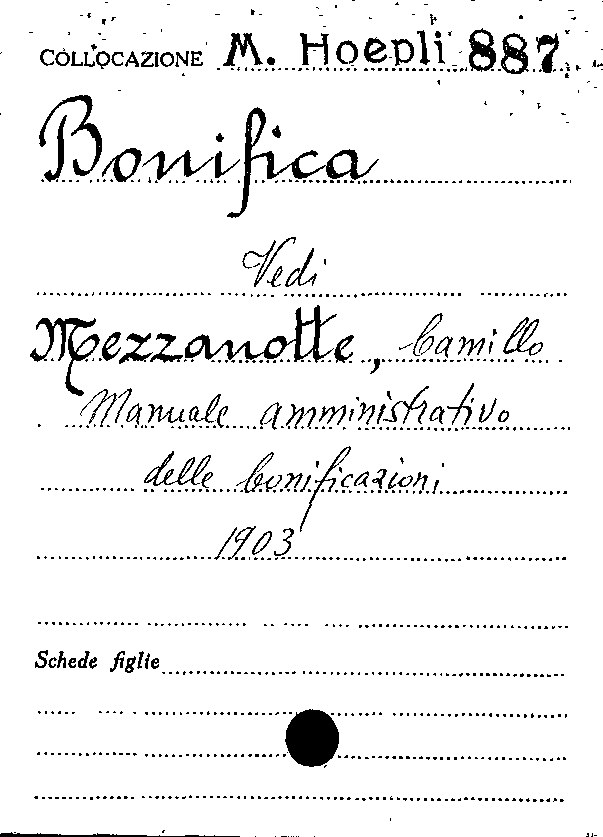 COLLOCAZIONE M. Hoepli 887
Bonifica
Vedi
Mezzanotte, Camillo
Manuale amministrativo
delle bonificazioni
1903
Schede figlie